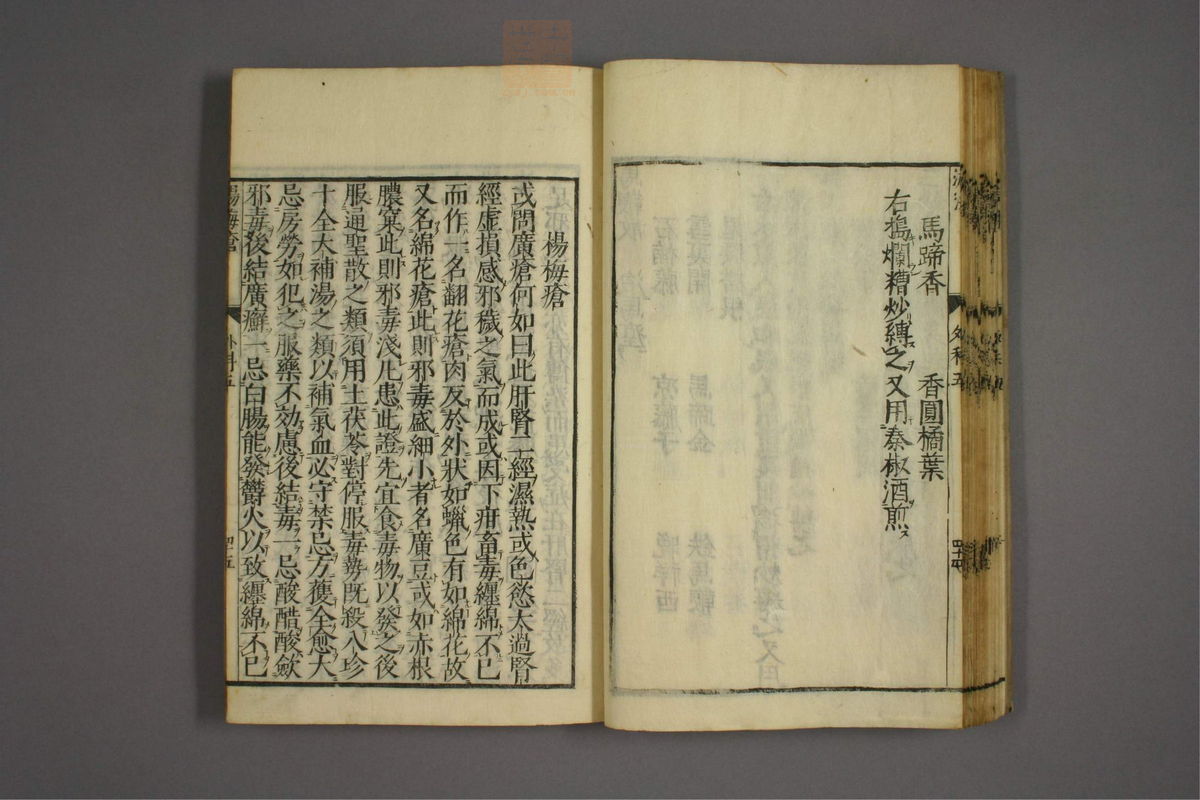 馬蹄香　香圓橘葉
右搗爛糟炒縛之又用秦椒酒煎
楊梅瘡
或問廣瘡何如曰此肝腎二經濕熱或色慾太過腎
經虛損感邪穢之氣而成或因下疳畜毒纏綿不已
而作一名翻花瘡肉反於外狀如蠟色有如綿花故
又名綿花瘡此則邪毒盛細小者名廣豆或如赤根
膿窠此則邪毒淺凡患此證先宜食毒物以發之後
服通聖散之類須用土茯苓對停服毒勢既殺八珍
十全大補湯之類以補氣血必守禁忌方獲全愈大
忌房勞如犯之服藥不効慮後結毒一忌酸醋酸斂
邪毒後結廣癬一忌白腸能發欝火以致纏綿不已
楊梅瘡
外科五
四十五